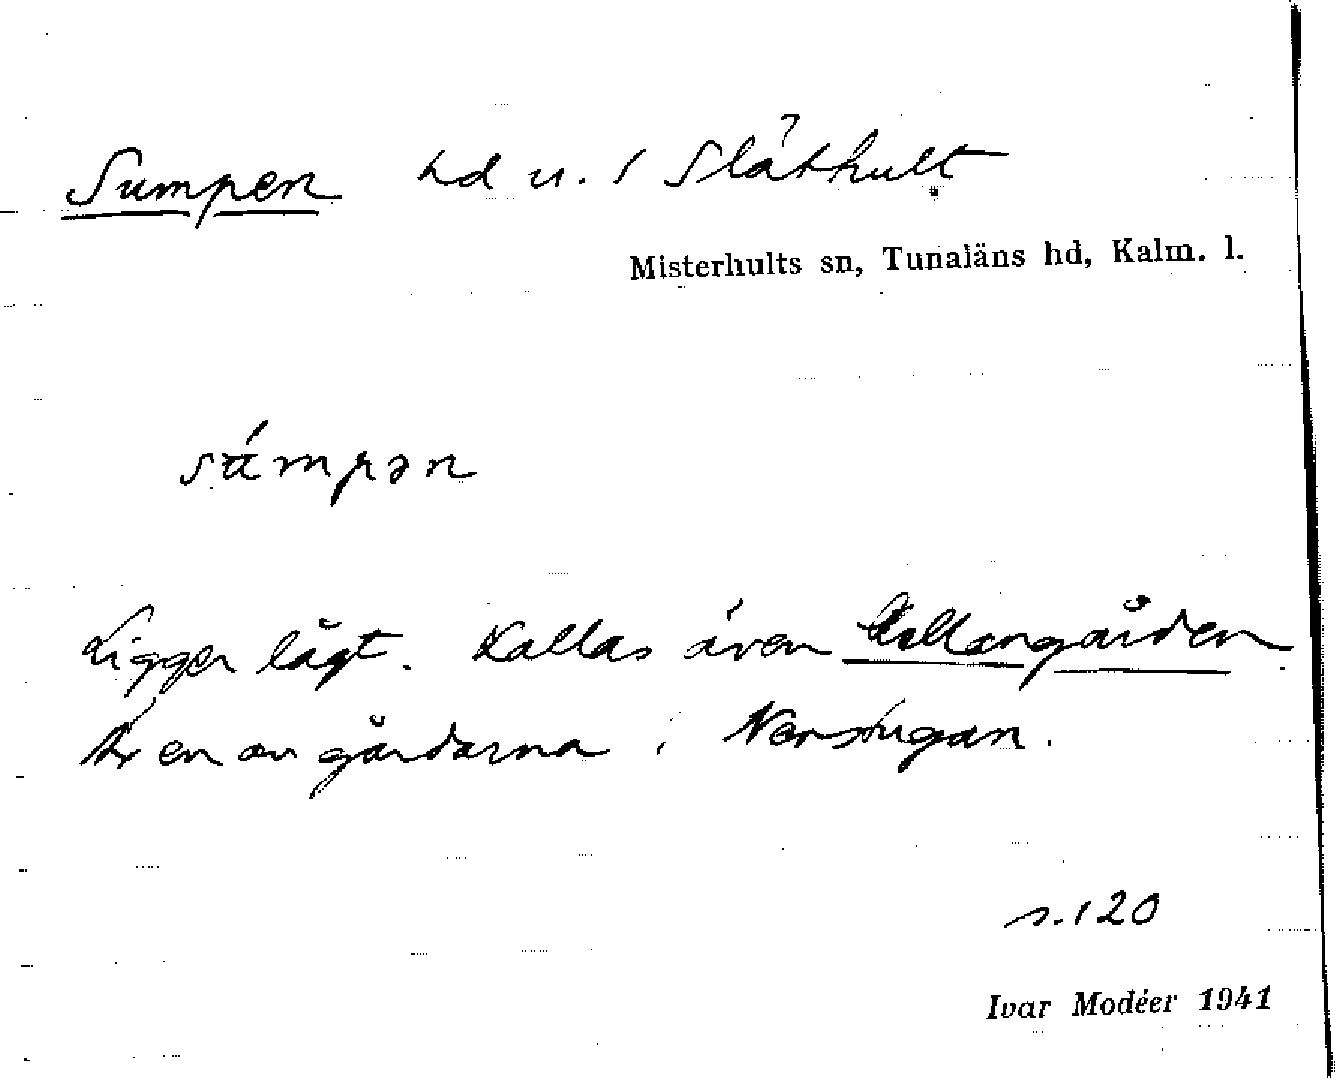 Sumpen hd u. 1 Släthult
Misterhults sn, Tunaläns hd, Kalm. l.
súmpən
Ligger lågt. Kallas även Mellangården
Är en av gårdarna i Norstugan.
s. 120
Ivar Modéer 1941